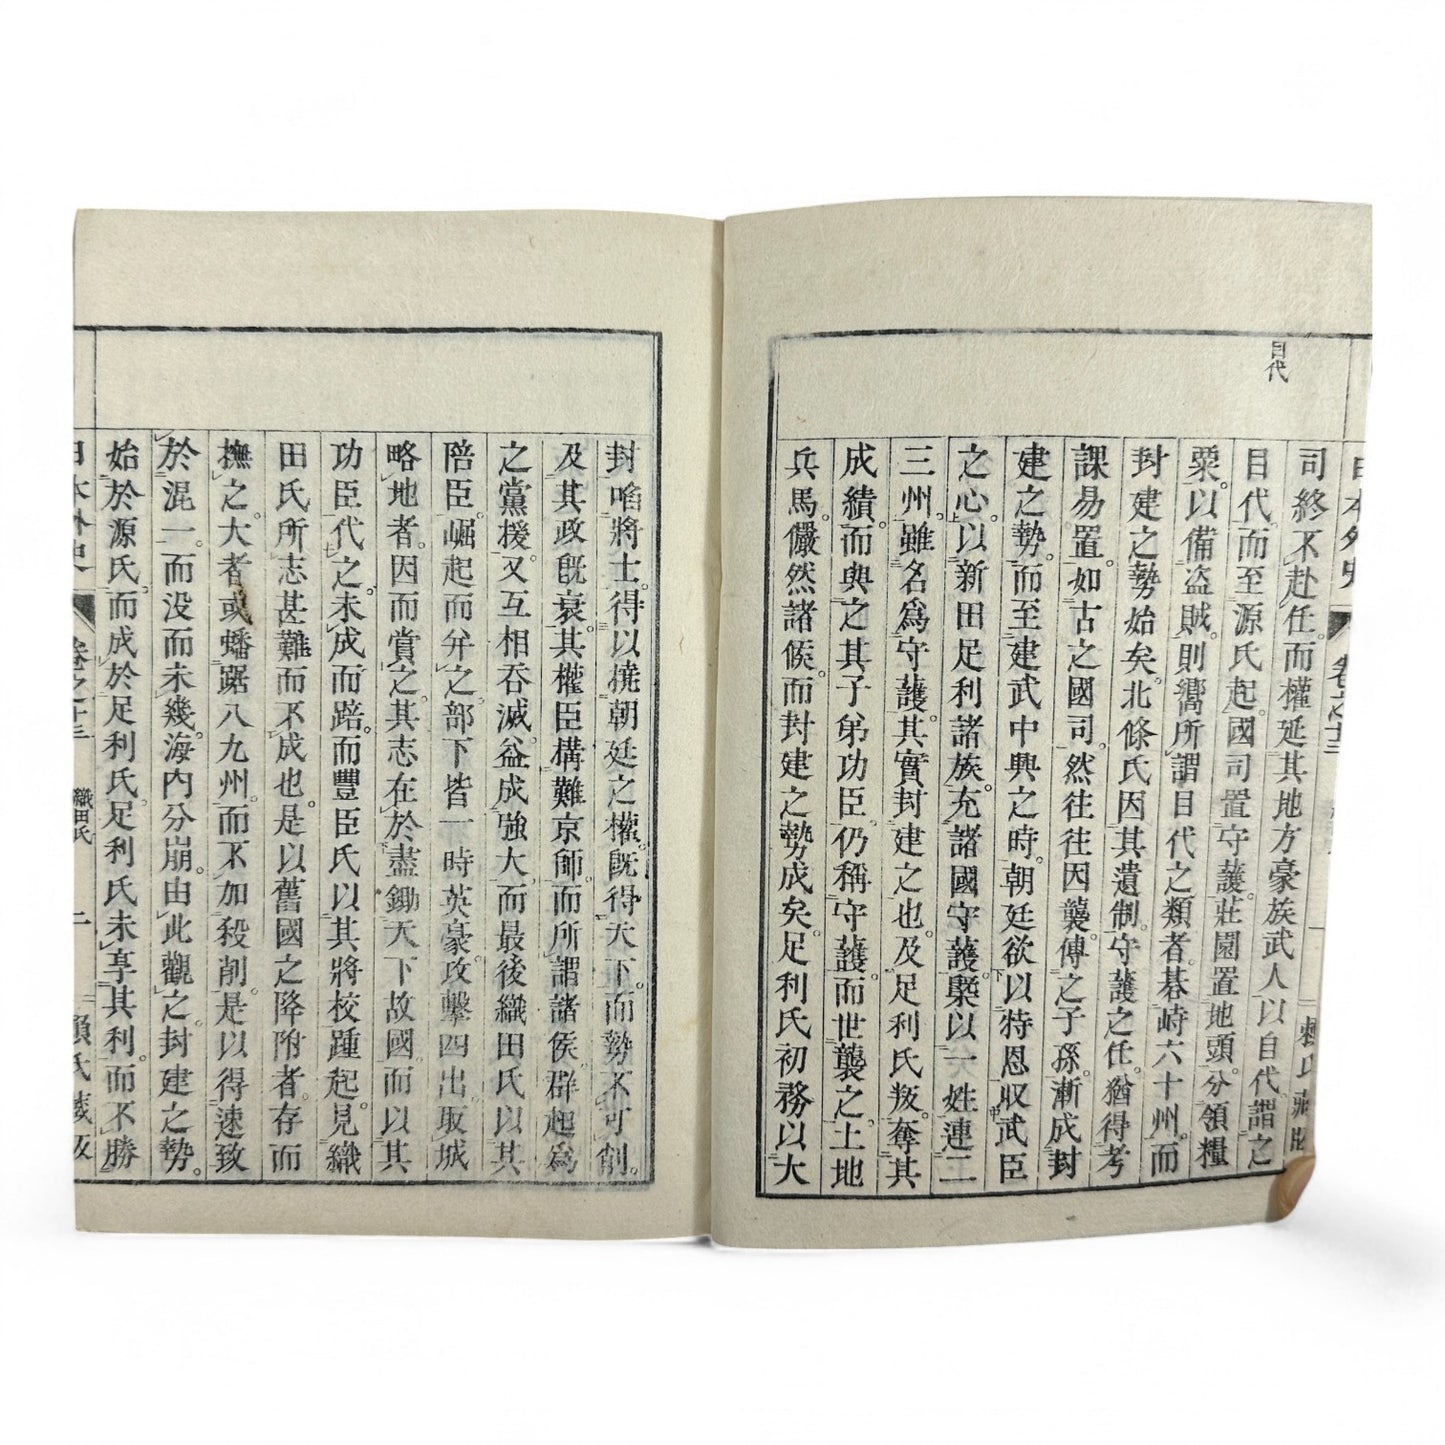 目代
司終不赴任。而權延其地方豪族武人以自代。謂之
目代。而至源氏起。國司置守護。莊園置地頭。分領糧
粟。以備盜賊。則嚮所謂目代之類者。棊峙六十州。而
封建之勢始矣。北條氏因其遺制。守護之任。猶得考
課易置。如古之國司。然往往因襲。傳之子孫。漸成封
建之勢。而至建武中興之時。朝廷欲以特恩收武臣
之心。以新田足利諸族。充諸國守護。槩以一姓連二
三州。雖名爲守護。其實封建之也。及足利氏叛。奪其
成績。而與之其子弟功臣。仍稱守護。而世襲之。土地
兵馬。儼然諸侯。而封建之勢成矣。足利氏初務以大
封㗖將士。得以撓朝廷之權。既得天下。而勢不可削。
及其政既衰。其權臣構難京師。而所謂諸侯。群起爲
之黨援。又互相吞滅。益成強大。而最後織田氏以其
陪臣。崛起而弁之。部下皆一時英豪。攻擊四出。取城
略地者。因而賞之。其志在於盡鋤天下故國。而以其
功臣代之。未成而踣。而豐臣氏以其將校踵起。見織
田氏所志甚難而不成也。是以舊國之降附者。存而
撫之。大者或蟠踞八九州。而不加殺削。是以得速致
於混一。而没而未幾。海内分崩。由此觀之。封建之勢。
始於源氏。而成於足利氏。足利氏未享其利。而不勝
日本外史 卷之十三 織田氏 二 頼氏藏版